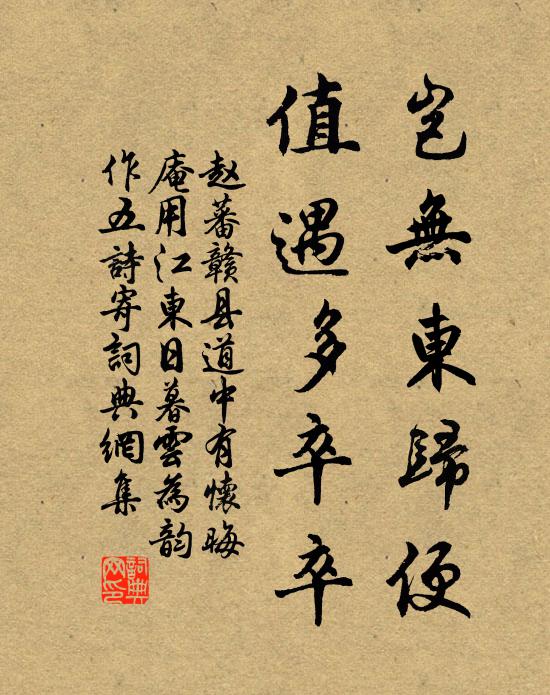 豈無東歸便
值遇多卒卒
赵蕃贛县道中有懷晦
庵用江東日暮雲為韵
作五詩寄詞典網集
詞典網印